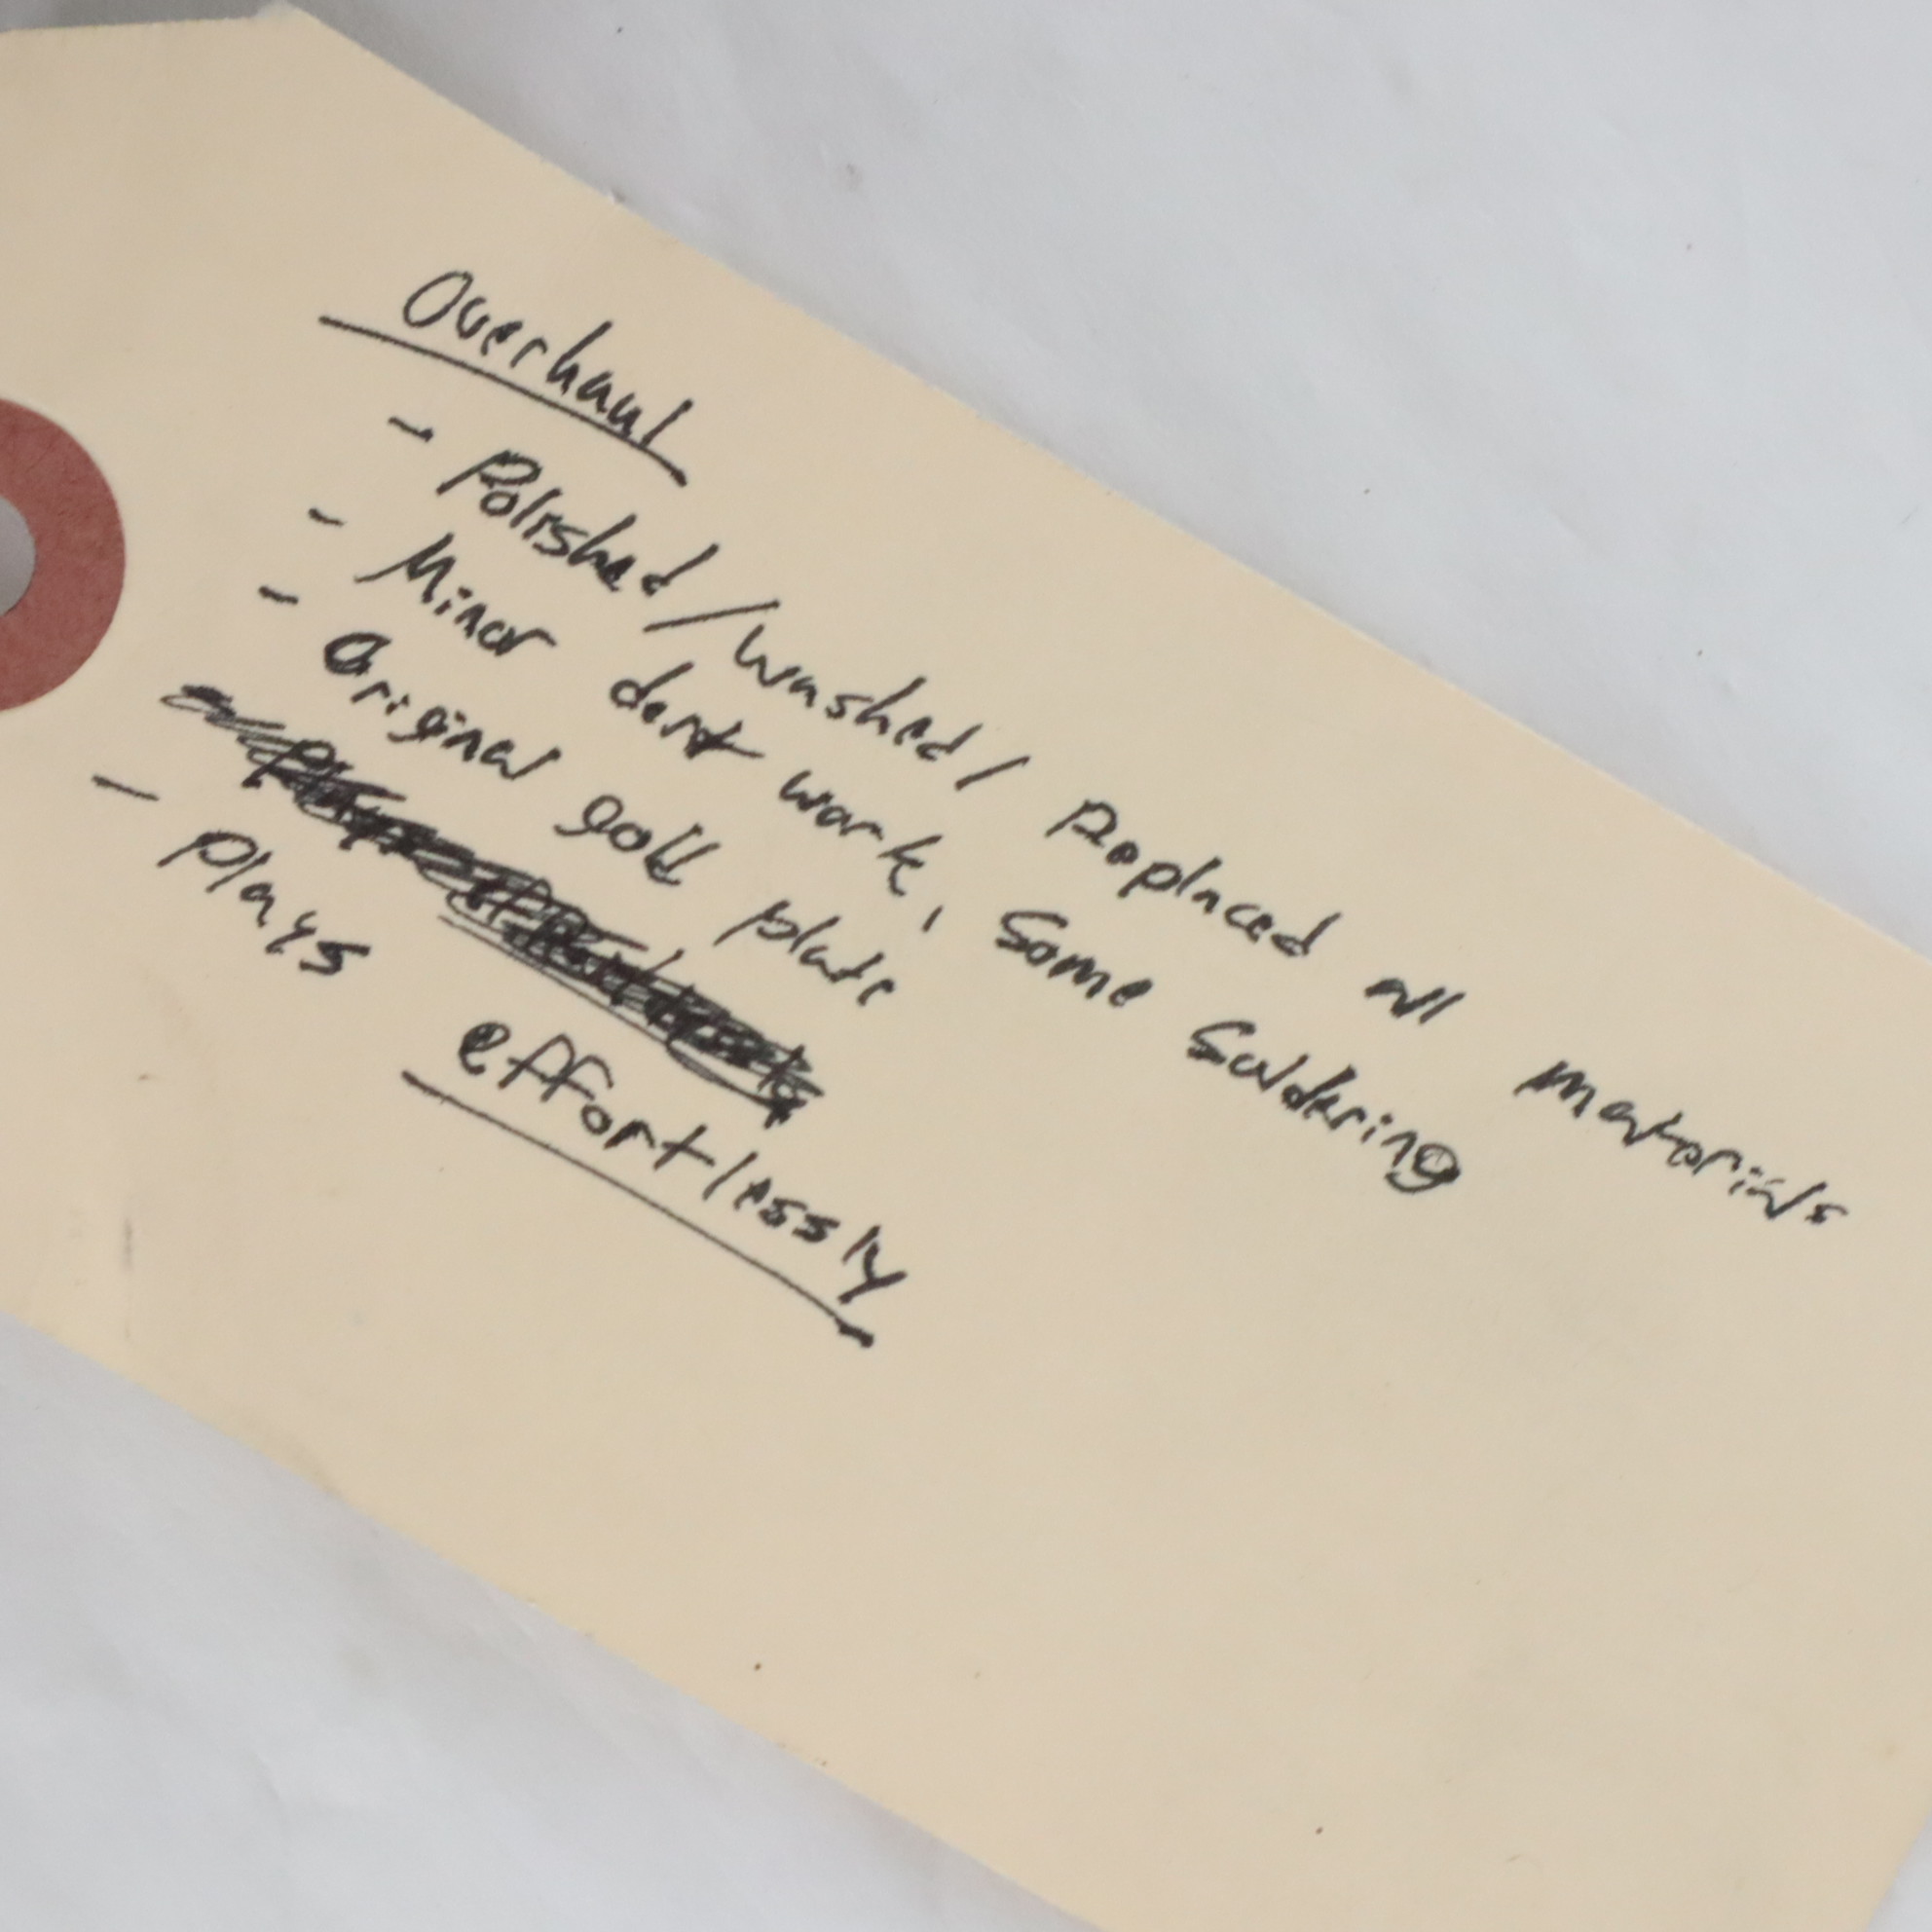 Overhaul
- Polished/washed/ Replaced all materials
- Minor dent work, Some Soldering
- Original gold plate
- Plays effortlessly